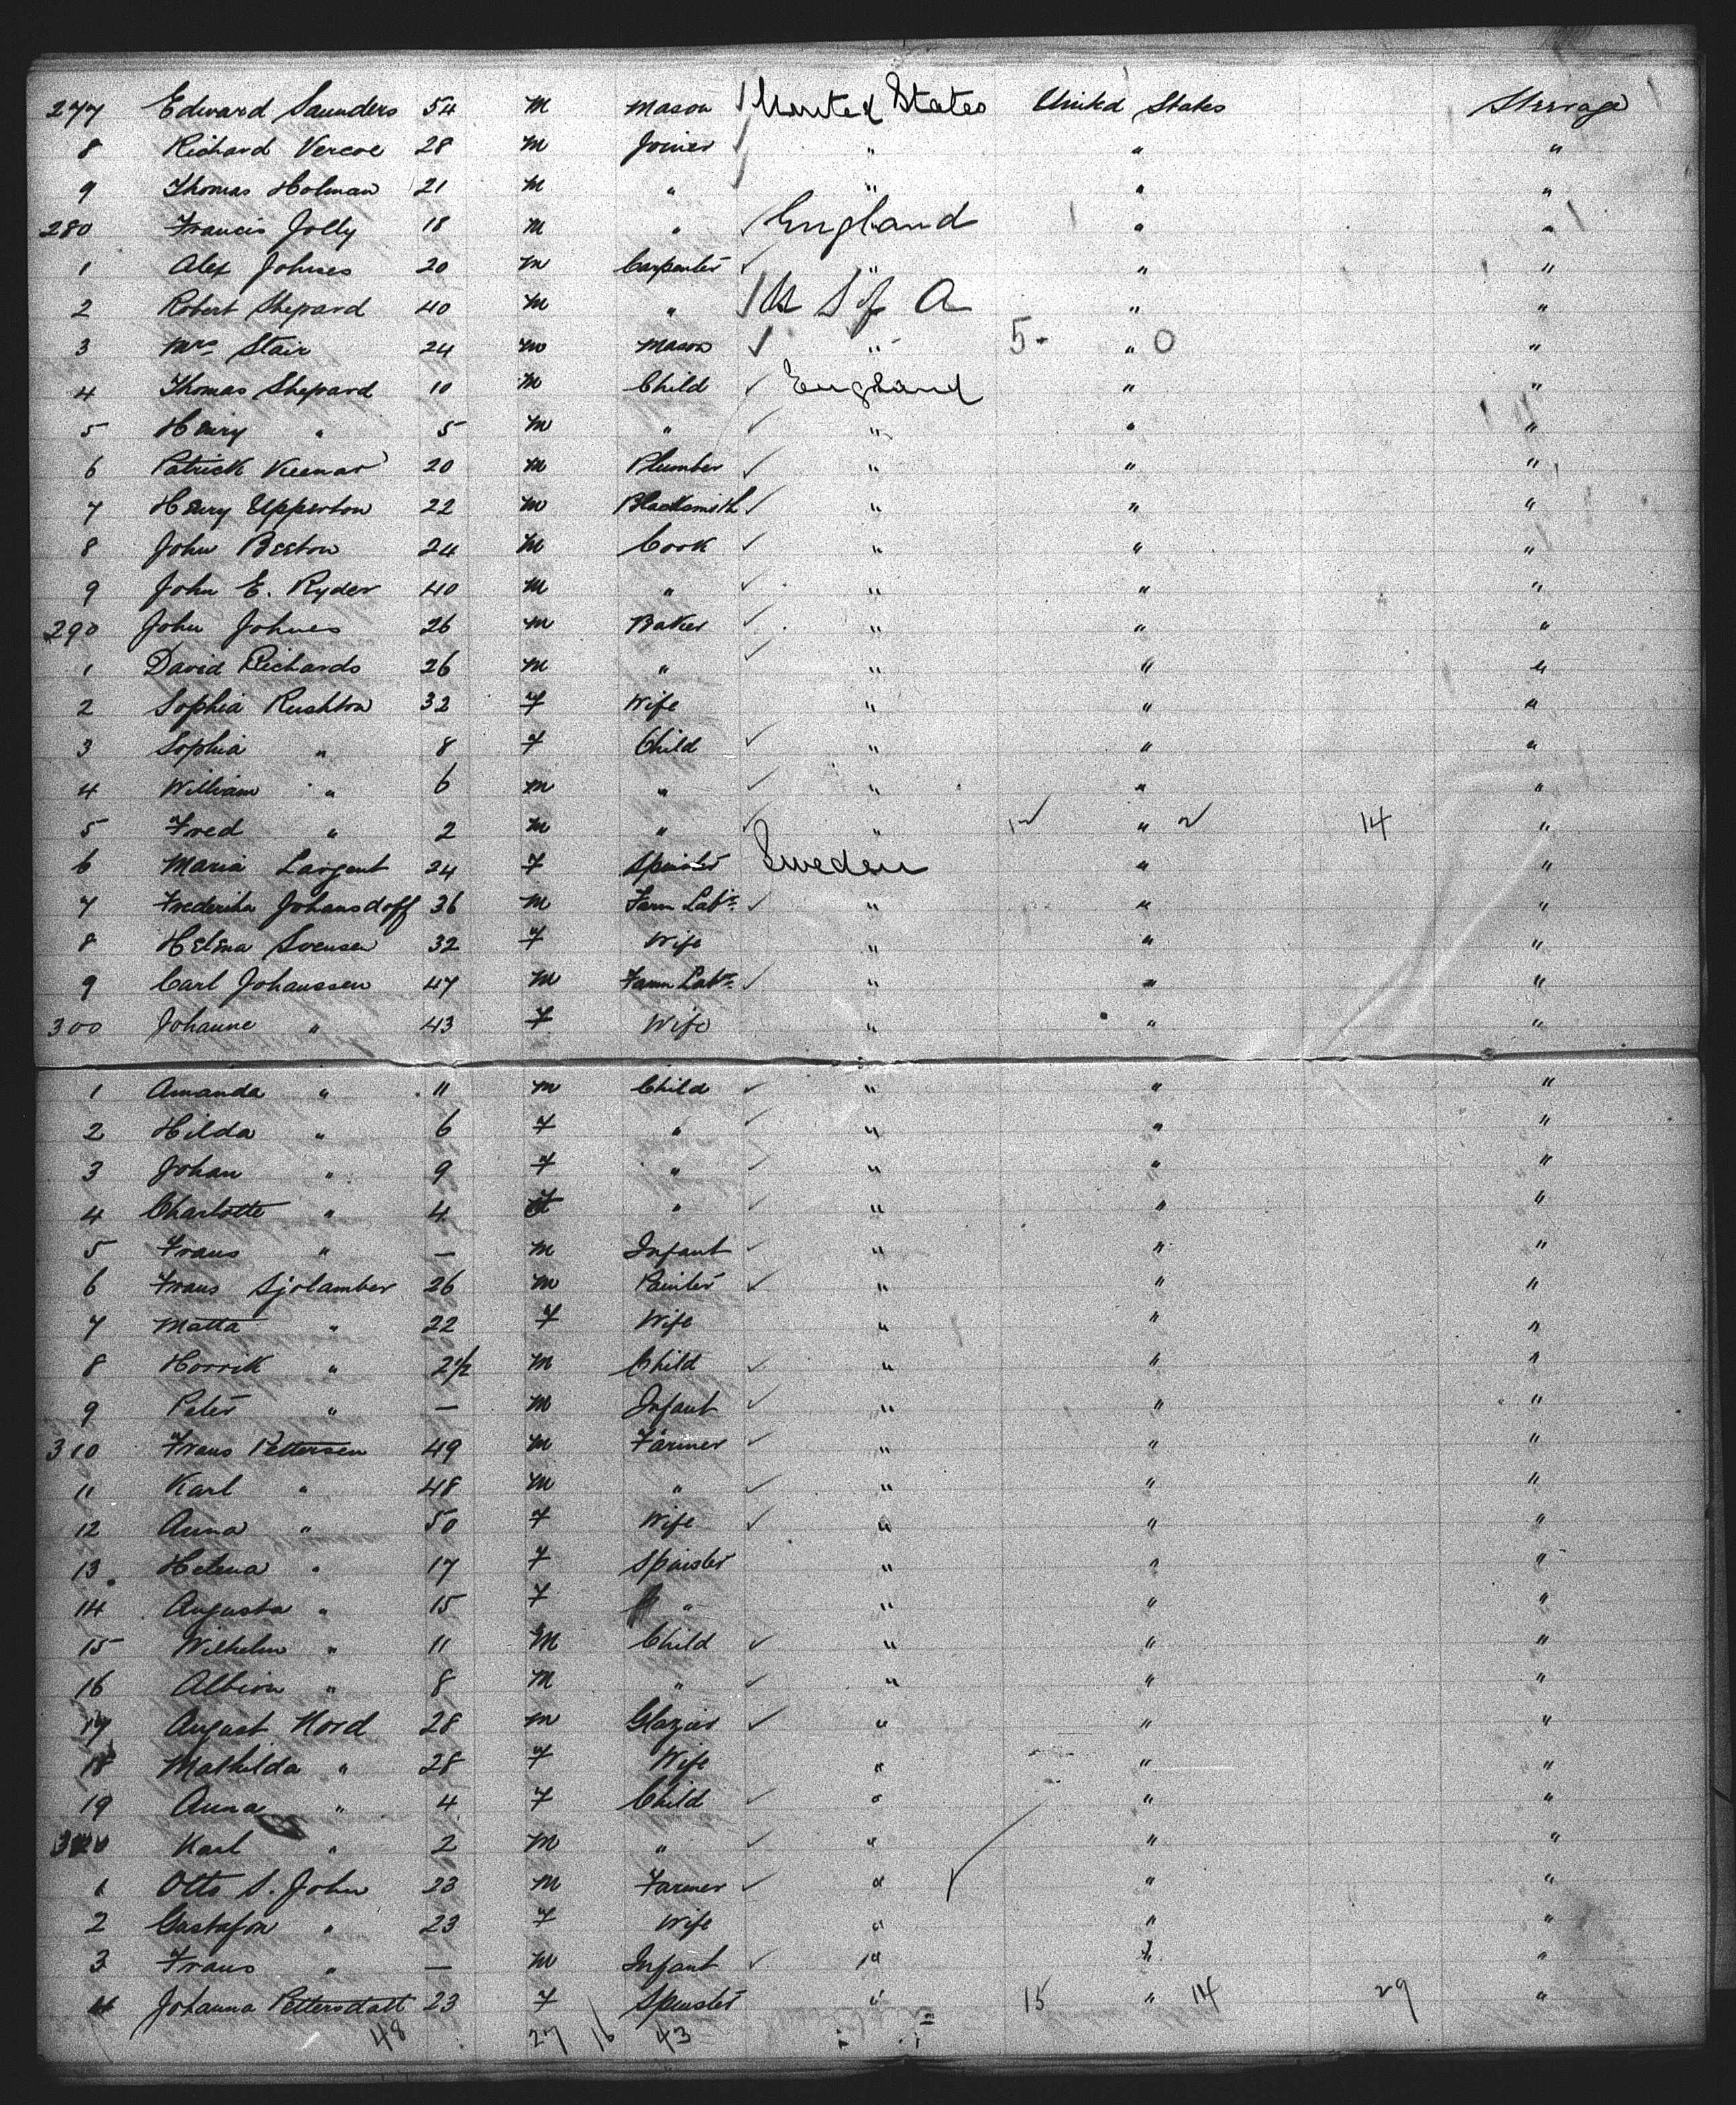 277 Edward Saunders 54 M Mason United States United States Steerage
8 Richard Vercoe 28 M Joiner " " "
9 Thomas Holman 21 M " " " "
280 Francis Jolly 18 M " England " "
1 Alex Johnes 20 M Carpenter " " "
2 Robert Shepard 40 M " U S of A " "
3 Mrs Stair 24 M Mason " 5- " 0 "
4 Thomas Shepard 10 M Child England " "
5 Henry " 5 M " " " "
6 Patrick Keenar 20 M Plumber " " "
7 Henry Upperton 22 M Blacksmith " " "
8 John Beeton 24 M Cook " " "
9 John E. Ryder 40 M " " " "
290 John Johnes 26 M Baker " " "
1 David Richards 26 M " " " "
2 Sophia Rushton 32 F Wife " " "
3 Sophia " 8 F Child " " "
4 William " 6 M " " " "
5 Fred " 2 M " " " 14 "
6 Maria Largent 24 F Spinster Sweden " "
7 Frederika Johansdoff 36 M Farm Labr. " " "
8 Helena Svensen 32 F Wife " " "
9 Carl Johanssen 47 M Farm Labr. " " "
300 Johanne " 43 F Wife " " "
1 Amanda " 11 M Child " " "
2 Hilda " 6 F " " " "
3 Johan " 9 F " " " "
4 Charlotte " 4 F " " " "
5 Frans " — M Infant " " "
6 Frans Sjolamber 26 M Painter " " "
7 Matta " 22 F Wife " " "
8 Horrik " 2½ M Child " " "
9 Peter " — M Infant " " "
310 Frans Pettersen 49 M Farmer " " "
11 Karl " 48 M " " " "
12 Anna " 50 F Wife " " "
13 Helena " 17 F Spinster " " "
14 Augusta " 15 F " " " "
15 Wilhelm " 11 M Child " " "
16 Albion " 8 M " " " "
17 August Nord 28 M Glazier " " "
18 Mathilda " 28 F Wife " " "
19 Anna " 4 F Child " " "
320 Karl " 2 M " " " "
1 Otto S. John 23 M Farmer " " "
2 Gustafon " 23 F Wife " " "
3 Frans " — M Infant " " "
4 Johanna Pettersdatt 23 F Spinster " 15 " 14 29 "
48 27 16 43